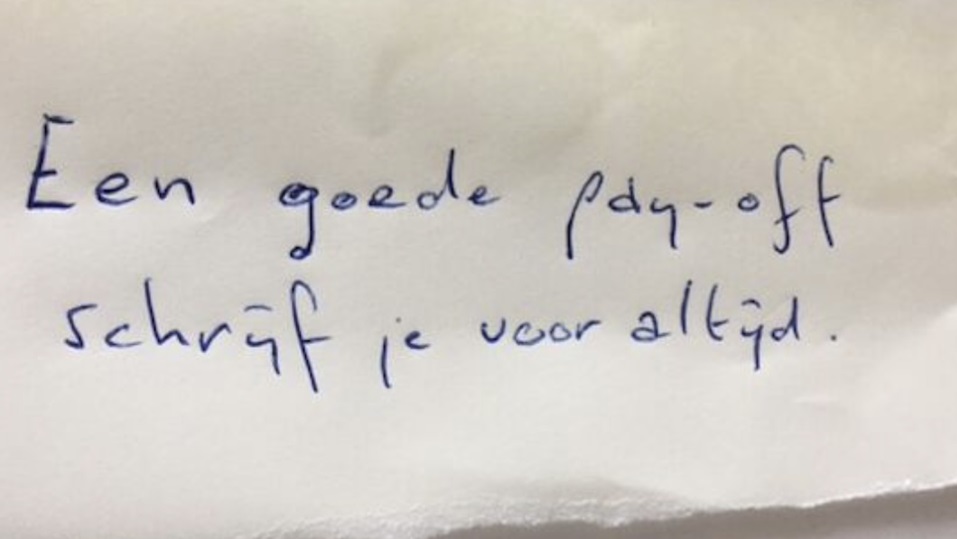 Een goede pay-off
schrijf je voor altijd.